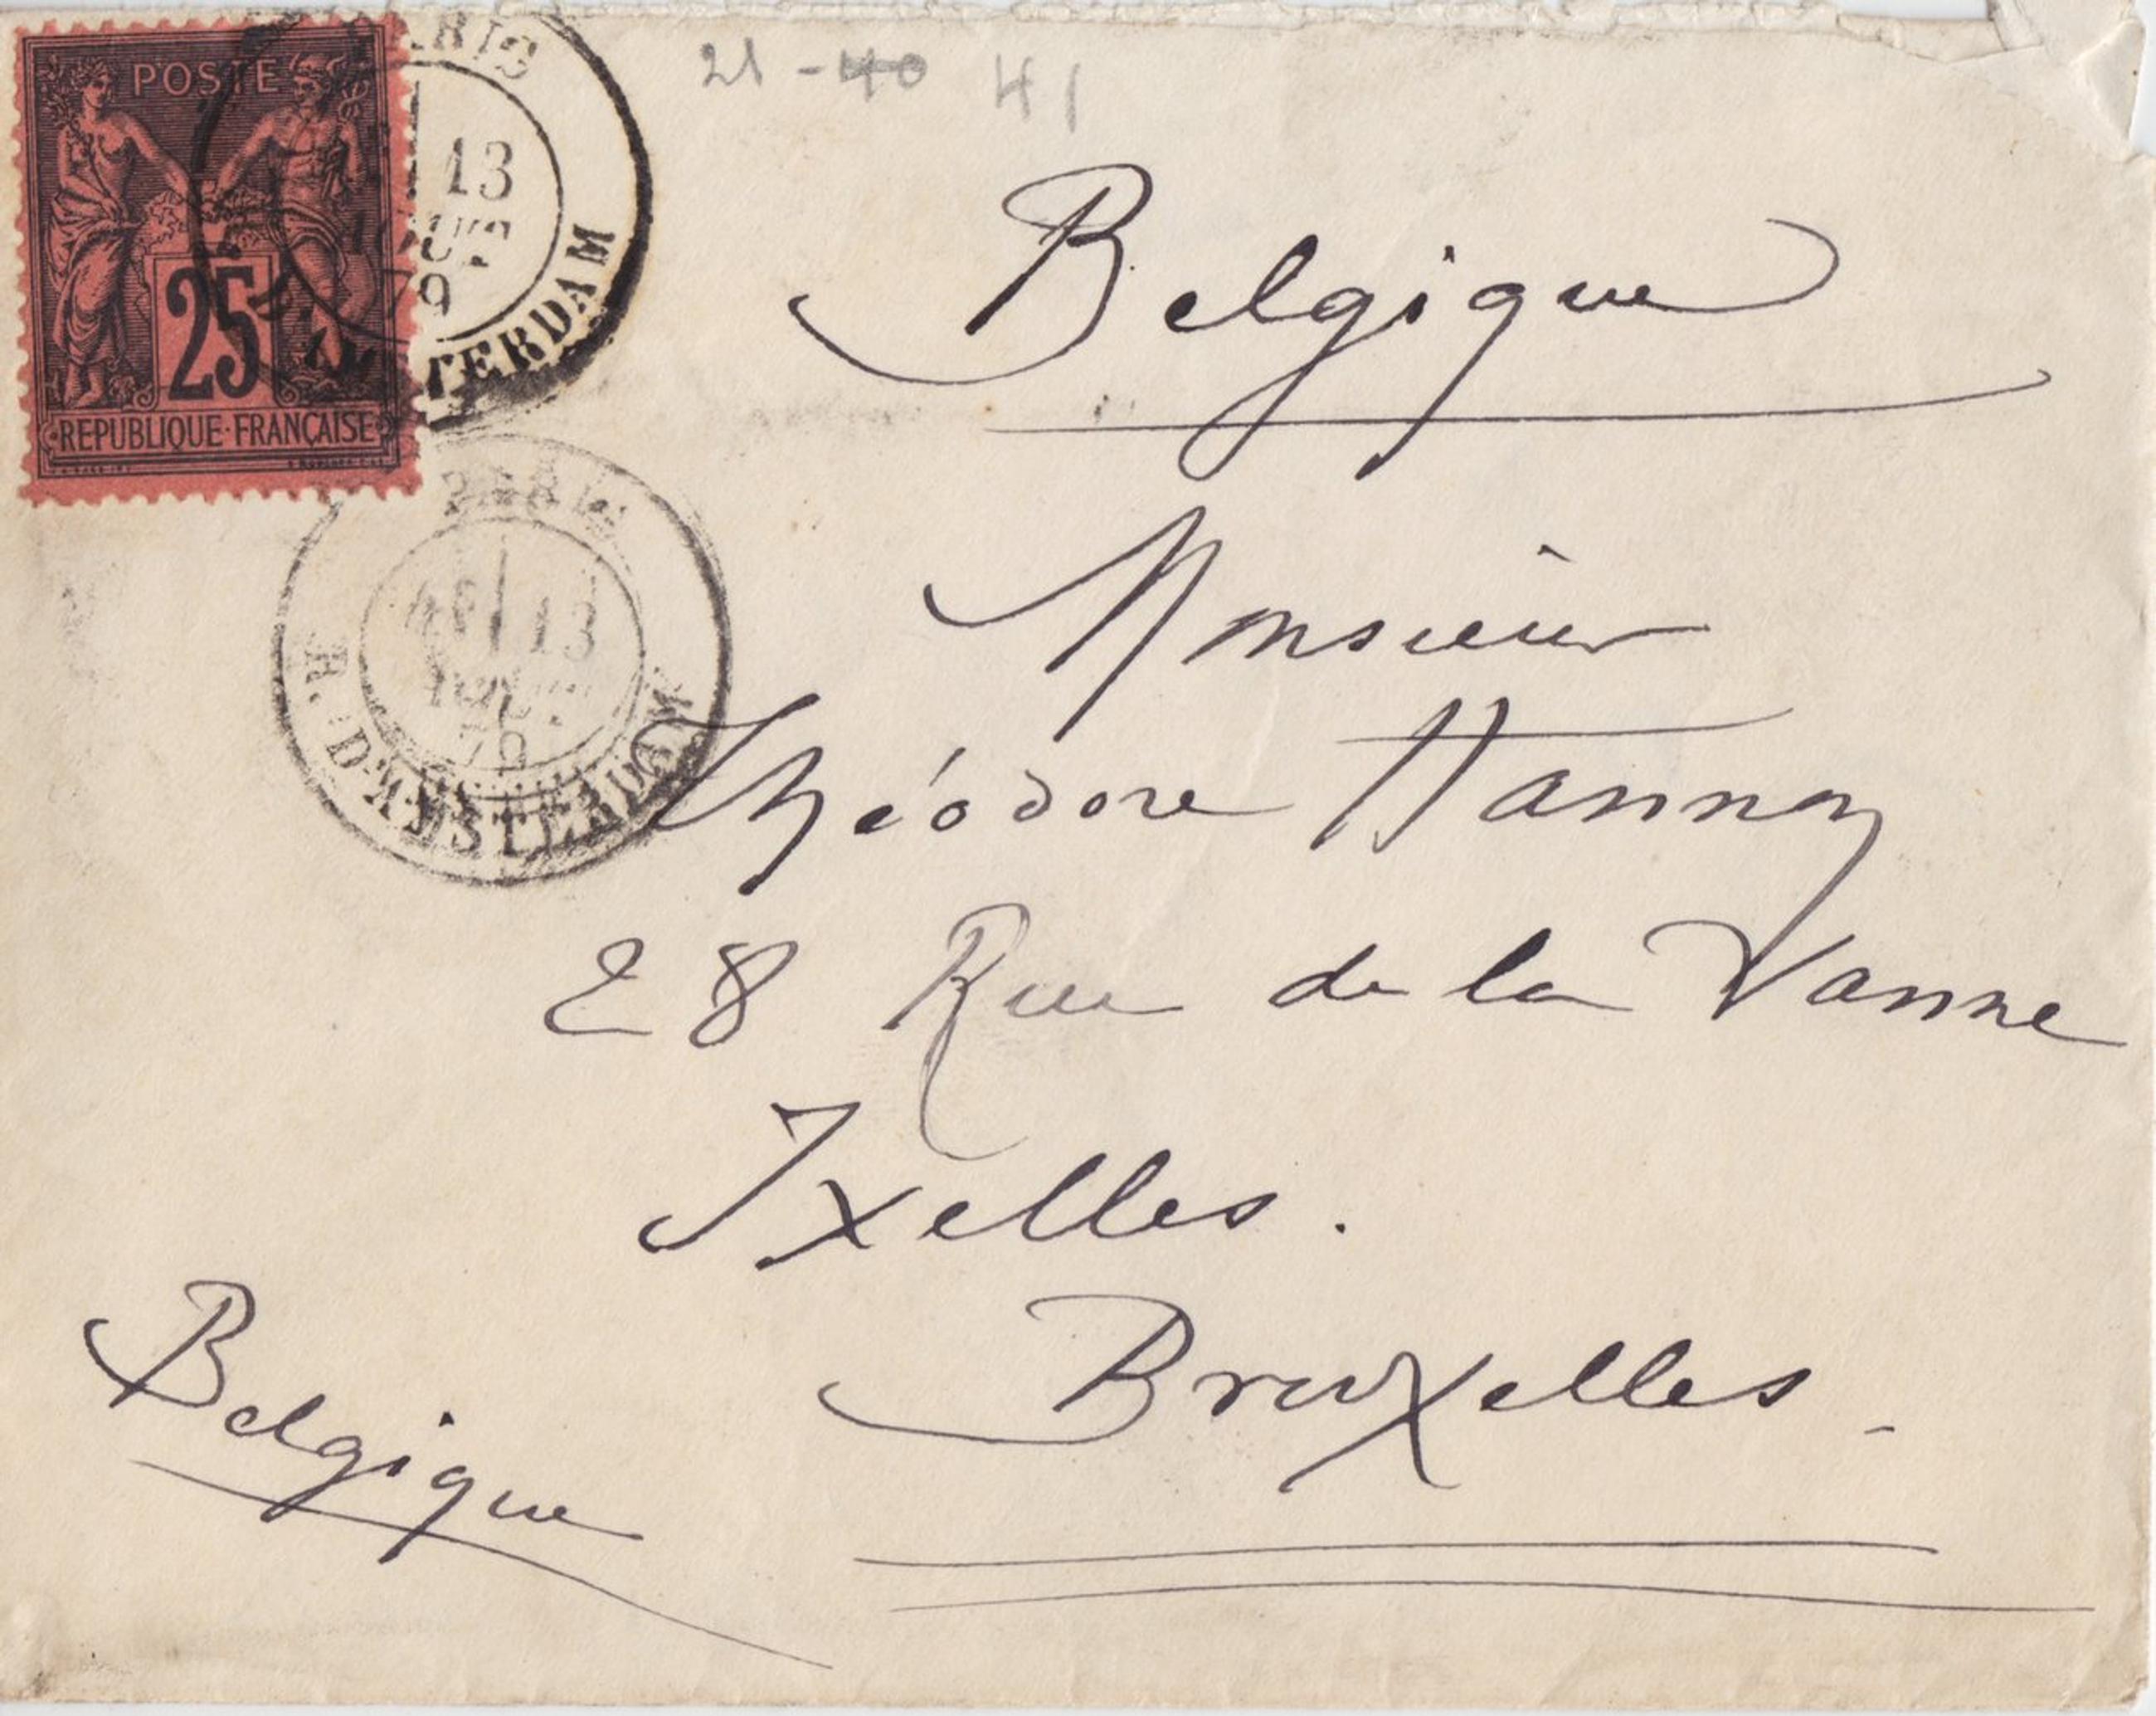 POSTE
25
REPUBLIQUE FRANÇAISE
PARIS
13
AOUT
79
AMSTERDAM
21-40 41
Belgique
PARIS
13
AOUT
79
R. D'AMSTERDAM
Monsieur
Théodore Hannon
28 Rue de la Vanne
Ixelles.
Bruxelles.
Belgique